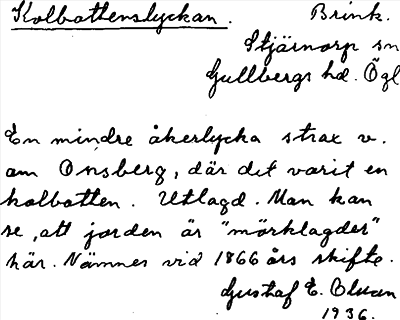 Kolbottenslyckan. Brink.
Stjärnorp sn
Gullbergs hd. Ögl
En mindre åkerlycka strax v.
om Onsberg, där det varit en
kolbotten. Utlagd. Man kan
se, att jorden är "mörklagder"
här. Nämnes vid 1866 års skifte.
Gustaf E. Olsson
1936.